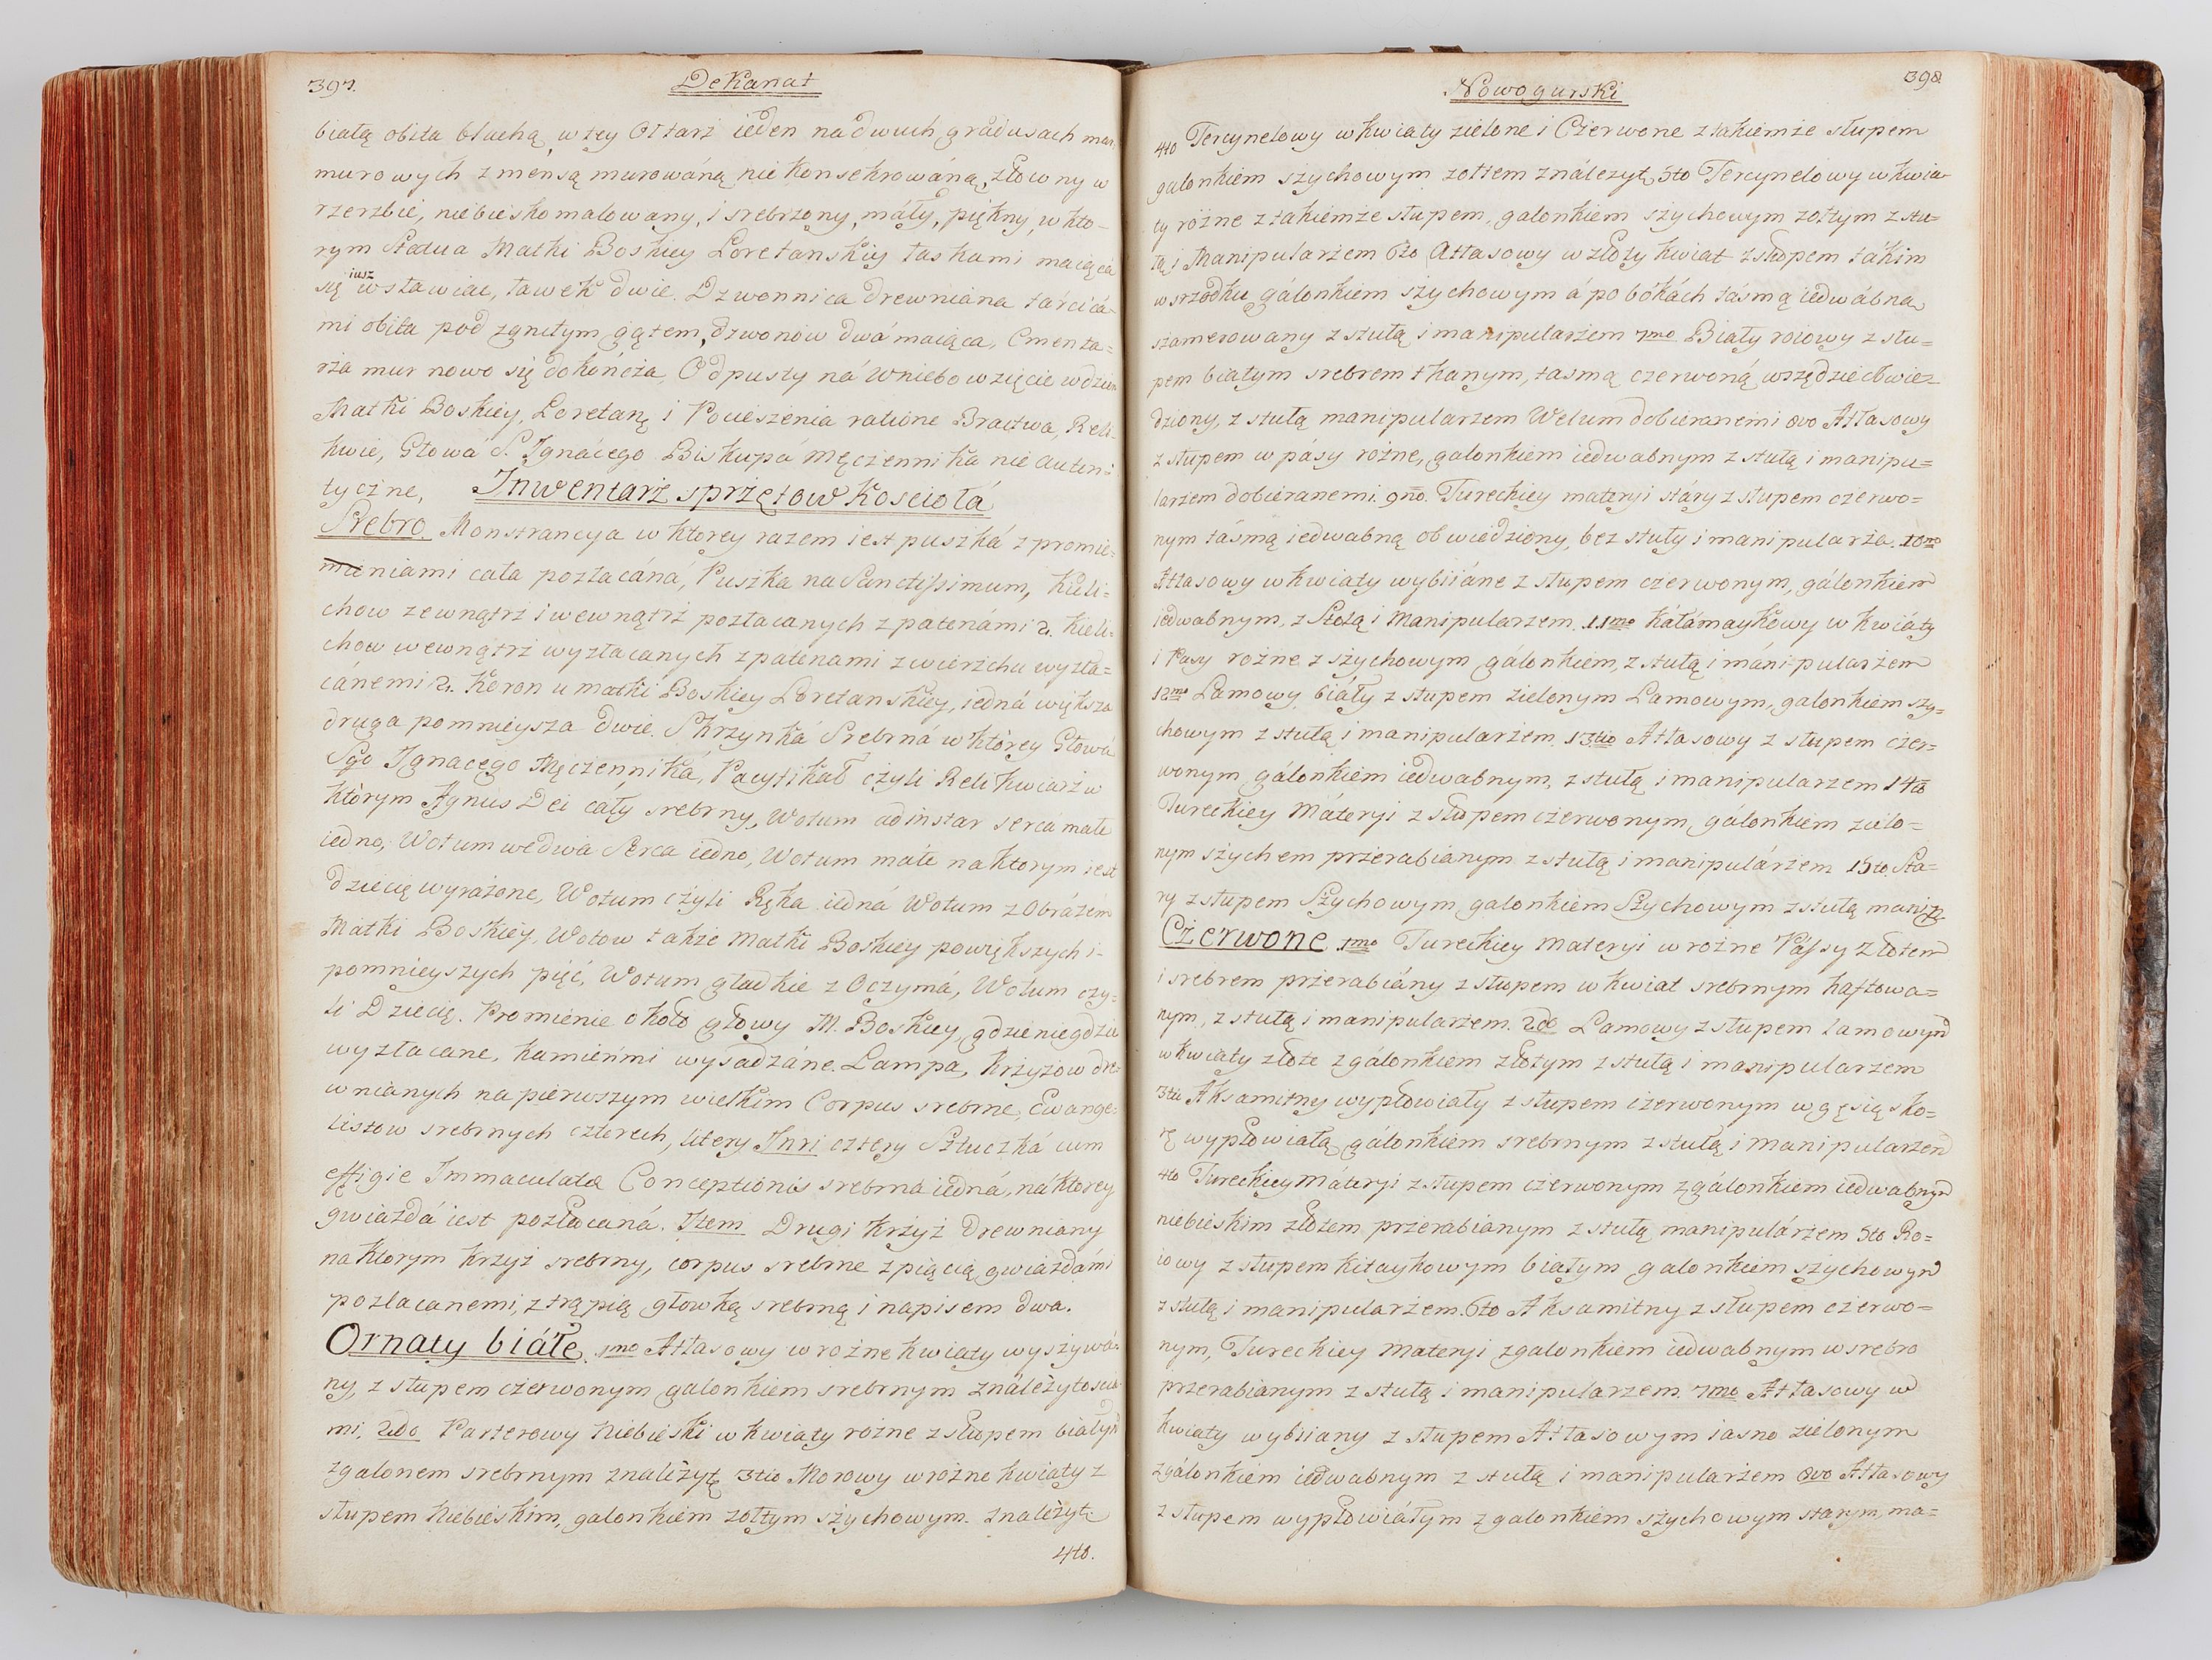 397.
DeKanat
białą obita blachą, w tey Ołtarz ieden na dwuch gradusach mar,
murowych z mensą murowáną nie Konsekrowáną, złowny w
rzerzbie, niebiesko malowany, i srebrzony, máły, piękny, w kto-
rym Statua Matki Boskiey Loretanskiey łaskami maiąca
się iusz wstawiac, ławek dwie. Dzwonnica drewniana tárcicá-
mi obita pod zgniłym gątem, dzwonow dwá maiąca, Cmenta=
rza mur nowo się dokończa, Odpusty ná Wniebowzięcie w dzien
Matki Boskiey, Loretaną i Pocieszenia ratione Bractwa, Reli-
kwie, Głowá S. Ignácego Biskupá Męczennika nie auten=
tyczne, Inwentarz sprzętow Koscioła
Srebro. Monstrancya w ktorey razem iest puszká z promie=
niami cała pozłacáná, Puszka na Sanctissimum, Kieli=
chow zewnątrz i wewnątrz pozłacanych z patenámi 2. Kieli=
chow wewnątrz wyzłacanych z patenami z wierzchu wyzła=
cánemi 2. Koron u matki Boskiey Loretanskiey, iedná większa
druga pomnieysza dwie. Skrzynká Srebrná w ktorey Głowá
Sgo Ignacego Męczenniká, Pacyfikał czyli Relikwiarz w
ktorym Agnus Dei cáły srebrny, Wotum ad instar serca małe
iedno, Wotum we dwa Serca iedno, Wotum małe na ktorym iest
dziecię wyrażone, Wotum czyli Ręka iedná Wotum z Obrázem
Matki Boskiey, Wotow także Matki Boskiey powiększych i-
pomnieyszych pięć, Wotum gładkie z Oczymá, Wotum czy=
li Dziecię. Promienie około głowy M. Boskiey, gdzieniegdzie
wyzłacane, kamieńmi wysadzáne. Lampa, Krzyżow dre-
wnianych na pierwszym wielkim Corpus srebrne, Ewange=
listow srebrnych czterech, litery Inri cztery Sztuczká cum
effigie Immaculatæ Conceptionis srebrna iedná, ná ktorey
gwiazdá iest pozłacaná. Item Drugi Krzyż Drewniany
na ktorym krzyż srebrny, corpus srebrne z pięcią gwiazdámi
pozlacanemi, z trąpią głowką srebrną i napisem dwa.
Ornaty białe. 1mo Atłasowy w rożne kwiaty wyszywá=
ny, z słupem czerwonym galonkiem srebrnym z náleżytoscia-
mi. 2do Parterowy Niebieski w kwiaty rożne z słupem białym
z galonem srebrnym z należyt. 3tio Morowy w rożne kwiaty z
słupem Niebieskim, galonkiem zołtym szychowym z należyt.
4to.
Nowogurski
398.
4to Tercynelowy w kwiaty zielone i Czerwone z takiemże słupem
galonkiem szychowym zołtem z nálezyt. 5to Tercynelowy w kwia-
ty rożne z takiemże słupem, galonkiem szychowym zołtym z stu=
łą i Manipularzem 6to Atłasowy w złoty kwiat z słupem tákim
w srzodku gálonkiem szychowym á po bokách tásmą iedwábną
szamerowany z stułą i manipularzem 7mo Biały roiowy z słu=
pem białym srebrem tkanym, tasmą czerwoną wszędzie obwie-
dziony, z stułą manipularzem Welum dobieranemi 8vo Atłasowy
z słupem w pásy rożne, galonkiem iedwabnym z stułą i manipu=
larzem dobieranemi. 9no. Tureckiey materyi stáry z słupem czerwo=
nym tásmą iedwabną obwiedziony, bez stuły i manipularza. 10mo
Atłasowy w kwiaty wybiiáne z słupem czerwonym, gálonkiem
iedwabnym, z Stułą i Manipularzem. 11mo Káłámaykowy w kwiáty
i Pasy rożne z szychowym gálonkiem, z stułą i mánipularzem
12mo Lamowy biáły z słupem zielonym Lamowym, galonkiem szy=
chowym z stułą i manipularzem. 13tio Atłasowy z słupem czer=
wonym gálonkiem iedwabnym, z stułą i manipularzem 14to
Tureckiey Máteryi z słupem czerwonym, gálonkiem zielo=
nym szychem przerabianym z stułą i manipulárzem 15to. Sta=
ry z słupem Szychowym galonkiem Szychowym z stułą manip.
Czerwone 1mo Tureckiey materyi w rożne Pássy złotem
i srebrem przerabiány z słupem w kwiat srebrnym haftowa=
nym, z stułą i manipularzem. 2do Lamowy z słupem lamowym
w kwiaty złote z gálonkiem złotym z stułą i manipularzem
3tio Aksamitny wypłowiały z słupem czerwonym w gęsią sko=
rę wypłowiałą gálonkiem srebrnym z stułą i manipularzem
4to Tureckiey máteryi z słupem czerwonym z gálonkiem iedwabnym
niebieskim złotem przerabianym z stułą manipulárzem 5to Ro=
iowy z słupem kitaykowym białym galonkiem szychowym
z stułą i manipularzem. 6to Aksamitny z słupem czerwo=
nym, Tureckiey Materyi z galonkiem iedwabnym w srebro
przerabianym z stułą i manipularzem. 7mo Atłasowy w
kwiaty wybiiany z słupem Atłasowym iasno zielonym
z gálonkiem iedwabnym z stułą i manipularzem 8vo Atłasowy
z słupem wypłowiáłym z galonkiem szychowym starym, ma=